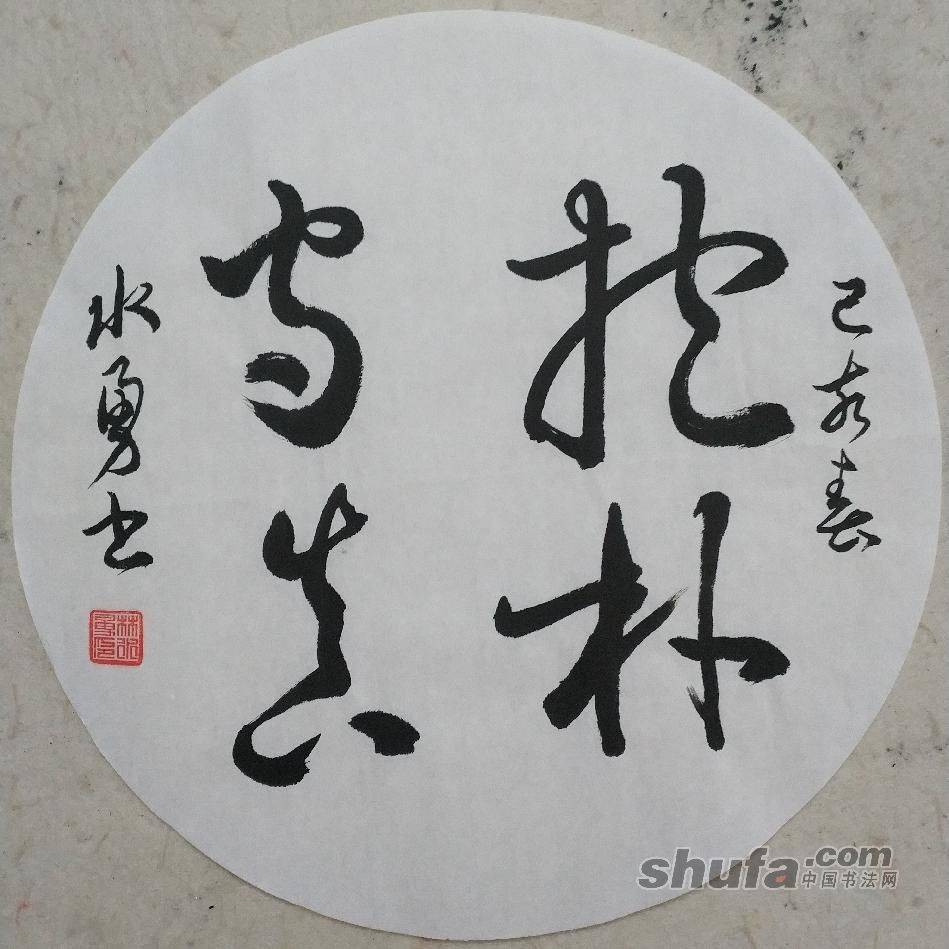 己亥春
抱朴
守真
水勇书
林水勇印
shufa.com
中国书法网